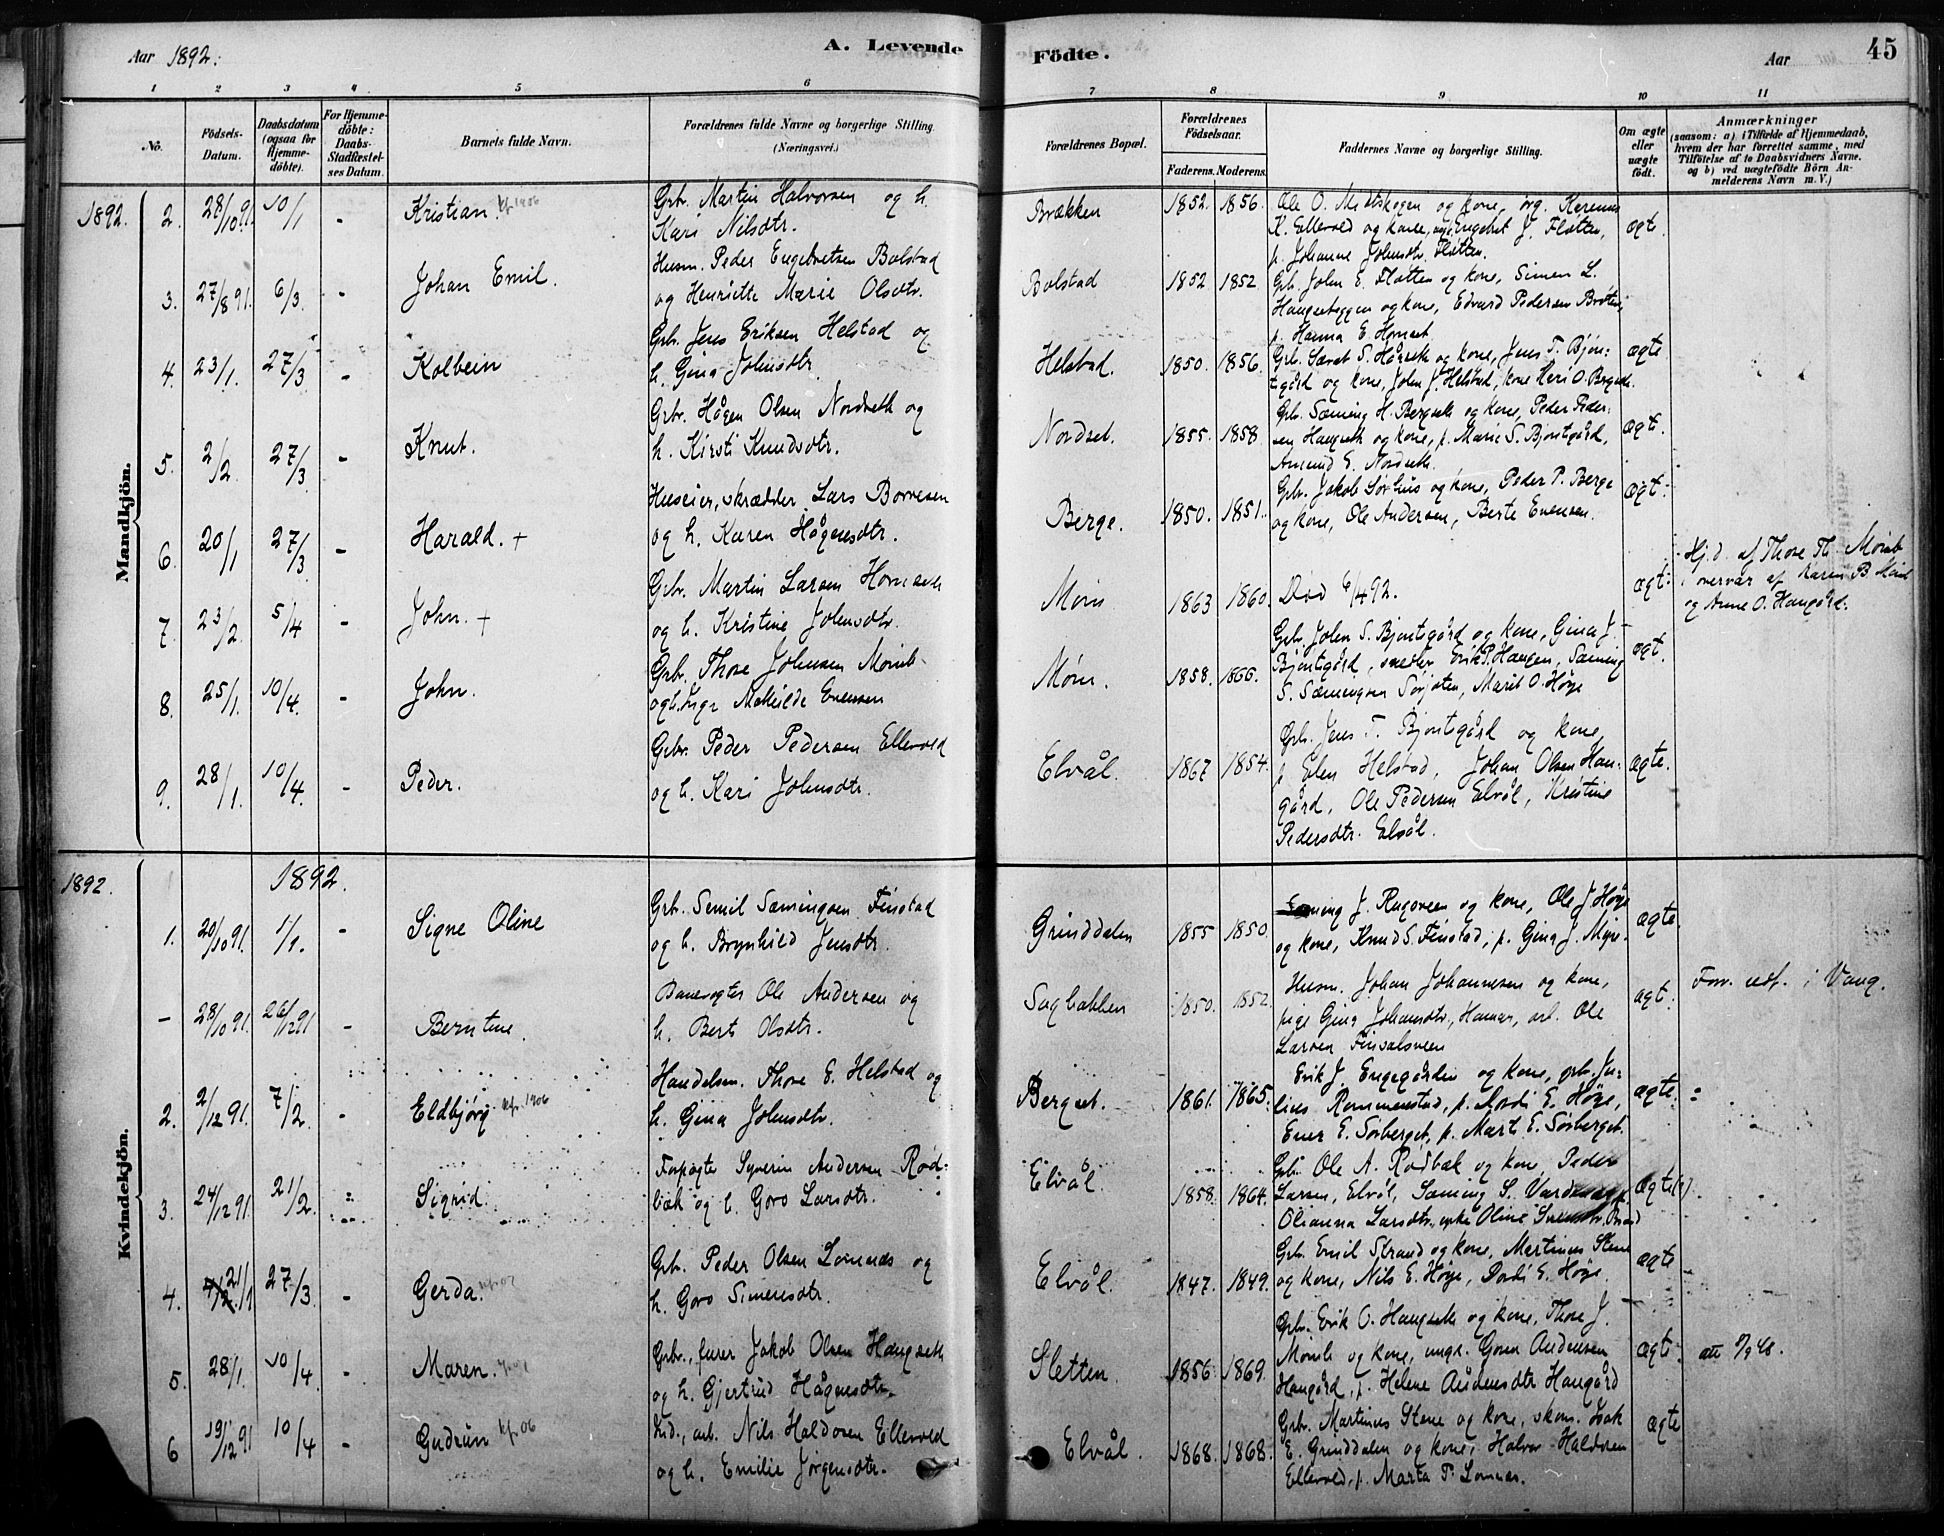 Aar 1892. A. Levende Födte. Aar 45
1 2 3 4 5 6 7 8 9 10 11
No.
Födsels-
Datum.
Daabsdatum
(ogsaa for
Hjemme-
döbte).
For Hjemme-
döbte:
Daabs-
Stadfæstel-
ses Datum.
Barnets fulde Navn.
Forældrenes fulde Navne og borgerlige Stilling.
(Næringsvei.)
Forældrenes Bopæl.
Forældrenes
Födselsaar.
Faderens. Moderens.
Faddernes Navne og borgerlige Stilling.
Om ægte
eller
uægte
födt.
Anmærkninger
(saasom: a) i Tilfælde af Hjemmedaab,
hvem der har forrettet samme, med
Tilföielse af to Daabsvidners Navne.
og b) ved uægtefödte Börn An-
melderens Navn m. V.)
Mandkjön.
1892. 2. 28/10 91. 10/1 - Kristian. kfr 1906
Grb. Martin Halvorsen og h.
Kari Nilsdtr.
Brækken 1852. 1856.
Ole O. Midtskogen og kone, org. Kerenus
K. Ellevold og kone, Engebret J. Fløtten,
p. Johanne Johnsdtr. Fløtten.
ægte
3. 27/8 91. 6/3. - Johan Emil.
Husm. Peder Engebretsen Bolstad
og Henriette Marie Olsdtr.
Bolstad 1852 1852
Grb. John E. Fløtten og kone, Simen L.
Haugseteggen og kone, Edvard Pedersen Bråten,
p. Hanna E. Hornset
4. 23/1. 27/3 - Kolbein
Grb. Jens Eriksen Helstad og
h. Gina Johnsdtr.
Helstad. 1850. 1856.
og kone, Jens T. Bjøn-
tgård og kone, John J. Helstad, kone Kari O.
ægte
5. 2/2. 27/3. - Knut.
Grb. Hågen Olsen Nordseth og
h. Kirsti Knudsdtr.
Nordset. 1855. 1858
Grb. Sæming H. Bergseth og kone, Peder Peder-
sen Haugseth og kone, p. Marie S. Bjøntgård,
Amund E. Nordseth.
ægt.
6 20/1 27/3. - Harald. +
Huseier, skrædder Lars Borresen
og h. Karen Hågensdtr.
Berge. 1850. 1851.
Grb. Jakob Sørhus og kone, Peder P. Berge
og kone, Ole Andersen, Berte Evensen.
ægt:
7. 23/2. 5/4 - John. +
Grb. Martin Larsen Hornseth
og h. Kristine Johnsdtr.
Møm 1863 1860.
Død 6/4 92.
ægt:
Hj.d. af Thore Th. Momb
i overvær af Karen B.
og Anne O. Haugård.
8. 25/1. 10/4. - John.
Grb. Thore Johnsen Momb
og h. Inga Mathilde Evensen
Møm. 1858. 1866.
Grb. John S. Bjøntgård og kone, Gina J.
Bjøntgård, snedker Erik P. Haugen, Sæming
S. Sæmingsen Sørjoten, Marit O. Høye
ægt.
9. 28/1. 10/4. - Peder.
Grbr. Peder Pedersen Ellevold
og h. Kari Johnsdtr.
Elvål. 1867 1854.
Grb. Jens T. Bjøntgård og kone,
p. Elen Helstad, Johan Olsen Hau-
gård, Ole Pedersen Elvål, Kristine
Pedersdtr. Elvål.
ægte.
Kvindekjön.
1892. 1892.
1. 20/10 91. 1/1. - Signe Oline
Grb. Semil Sæmingsen Finstad
og h. Brynhild Jensdtr.
Grinddalen 1855 1850.
Sæming J. Rugsveen og kone, Ole J Høye
og kone, Knud S. Finstad, p. Gina J. Myre.
ægte
- 28/10 91. 26/12 91 - Berntine.
Banevogter Ole Andersen og
h. Berit Olsdtr.
Sagbakken 1850. 1852.
Husm. Johan Johannesen og kone,
pige Gina Johansdtr., Hamar, arb. Ole
Larsen Finsalsveen
ægt.
Forr. udf. i Vang.
2. 2/12 91. 7/2. - Eldbjørg kfr. 1906
Handelsm. Thore E. Helstad og
h. Gina Johnsdtr.
Bergset. 1861. 1865.
Erik J. Engegården og kone, grb. Ju-
lius Rommenstad, p. Mordi E. Høye,
Ener E. Sørberget, p. Mart E. Sørberget.
ægte.
3. 24/12 91. 21/2. Sigrid.
Forpagter Syverin Andersen Rød-
bæk og h. Goro Larsdtr.
Elvål. 1858. 1864.
Grb. Ole A. Rødbæk og kone, Peder
Larsen, Elvål, Sæming S.
Olianna Larsdtr., enke Oline
ægte
4. 21/1 27/3. - Gerda. kfr 07
Grb. Peder Olsen Lomnes og
h. Goro Simensdtr.
Elvål. 1847. 1849.
Grb. Emil Strand og kone, Martinus Stene
og kone, Nils E. Høye, Dordi E. Høye.
ægte
5. 28/1. 10/4. - Maren.
Grbr., furer Jakob Olsen Haugseth
og h. Gjertrud Hågensdtr.
Sletten. 1856. 1869.
Grb. Erik O. Haugseth og kone, Thore J.
Momb og kone, ungk. Goren Andersen
Haugård, p. Helene Andersdtr Haugård
ægte.
6 19/12 91 10/4 - Gudrun kfr. 06
Ind., arb. Nils Haldosen Ellevold
og h. Emilie Jørgensdtr.
Elvål. 1868. 1868.
Grb. Martinus Stene og kone, skom. Isak
E. Grinddalen og kone, Halvor Haldosen
Ellevold, p. Marta T. Lomnes.
ægte